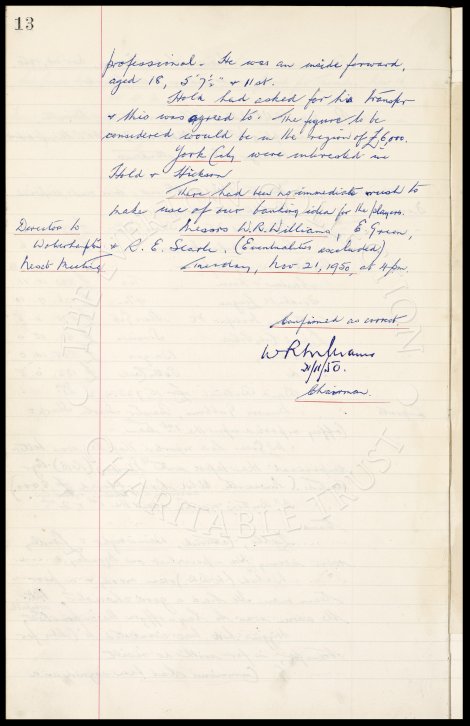 13
professional. He was an inside forward,
aged 18, 5' 7½" & 11 st.
Hold had asked for his transfer
& this was agreed to. The figure to be
considered would be in the region of £6,000.
York City were interested in
Hold & Hickson
There had been no immediate rush to
make use of our banking idea for the players.
Director to
Wolverhampton
Messrs W.R. Williams, E. Green,
& R. E. Searle. (Eventualities excluded)
Next Meeting
Tuesday, Nov 21, 1950, at 4 pm.
Confirmed as correct.
W R Williams
21/11/50.
Chairman.
CHARITABLE TRUST